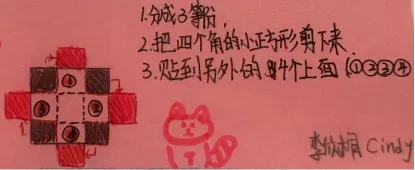 1.分成3等份,
2.把四个角的小正方形剪下来
3.贴到另外的4个上面(①②③④
李欣桐 Cindy